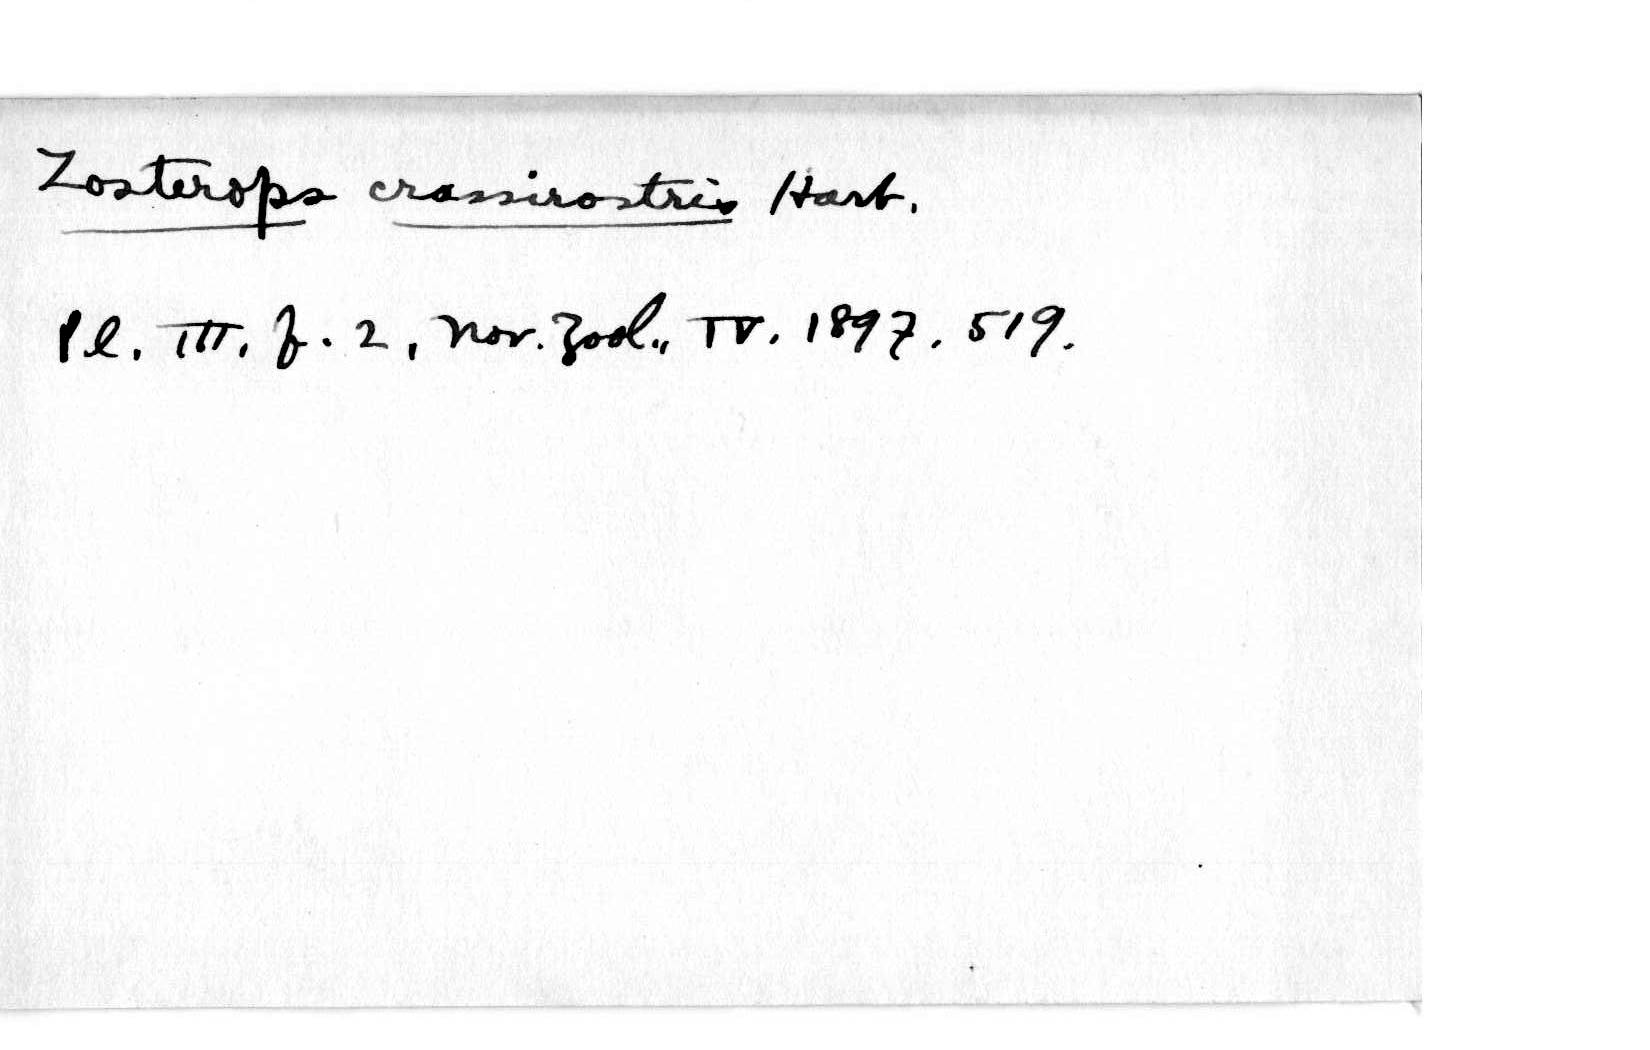 Zosterops crassirostris Hart.
Pl. III. f. 2, Nov. Zool., IV. 1897. 519.